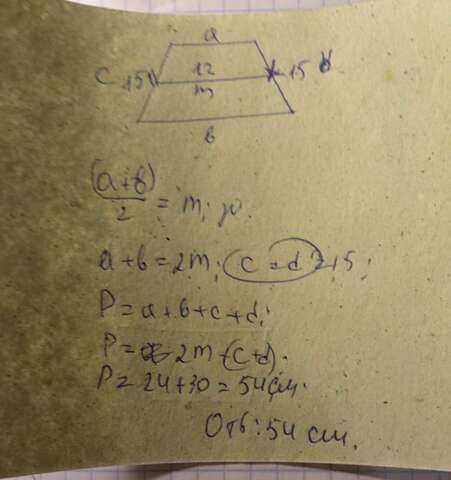 a
c 15 12 15 d
m
b
(a+b)/2 = m;
a+b=2m; c=d=15;
P=a+b+c+d;
P= 2m+(c+d).
P= 24+30=54см.
Отв: 54 см.